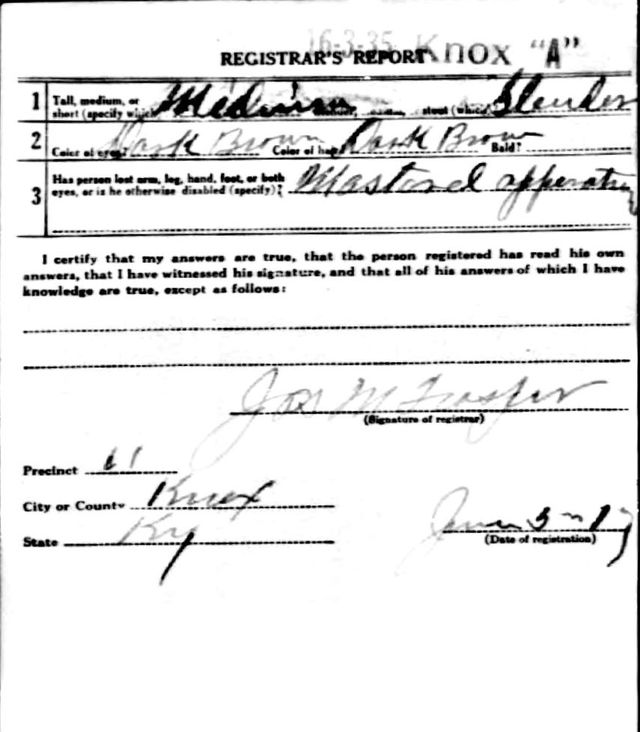 16-3-35 Knox "A"
REGISTRAR'S REPORT
1 Tall, medium, or short (specify which) Medium Slender, stout (which) Slender
2 Color of eyes Dark Brown Color of hair Dark Brown Bald?
3 Has person lost arm, leg, hand, foot, or both
eyes, or is he otherwise disabled (specify)? Mastoid
I certify that my answers are true, that the person registered has read his own
answers, that I have witnessed his signature, and that all of his answers of which I have
knowledge are true, except as follows:
Jos M
(Signature of registrar)
Precinct 11
City or County Knox
State Ky
June 5
(Date of registration)